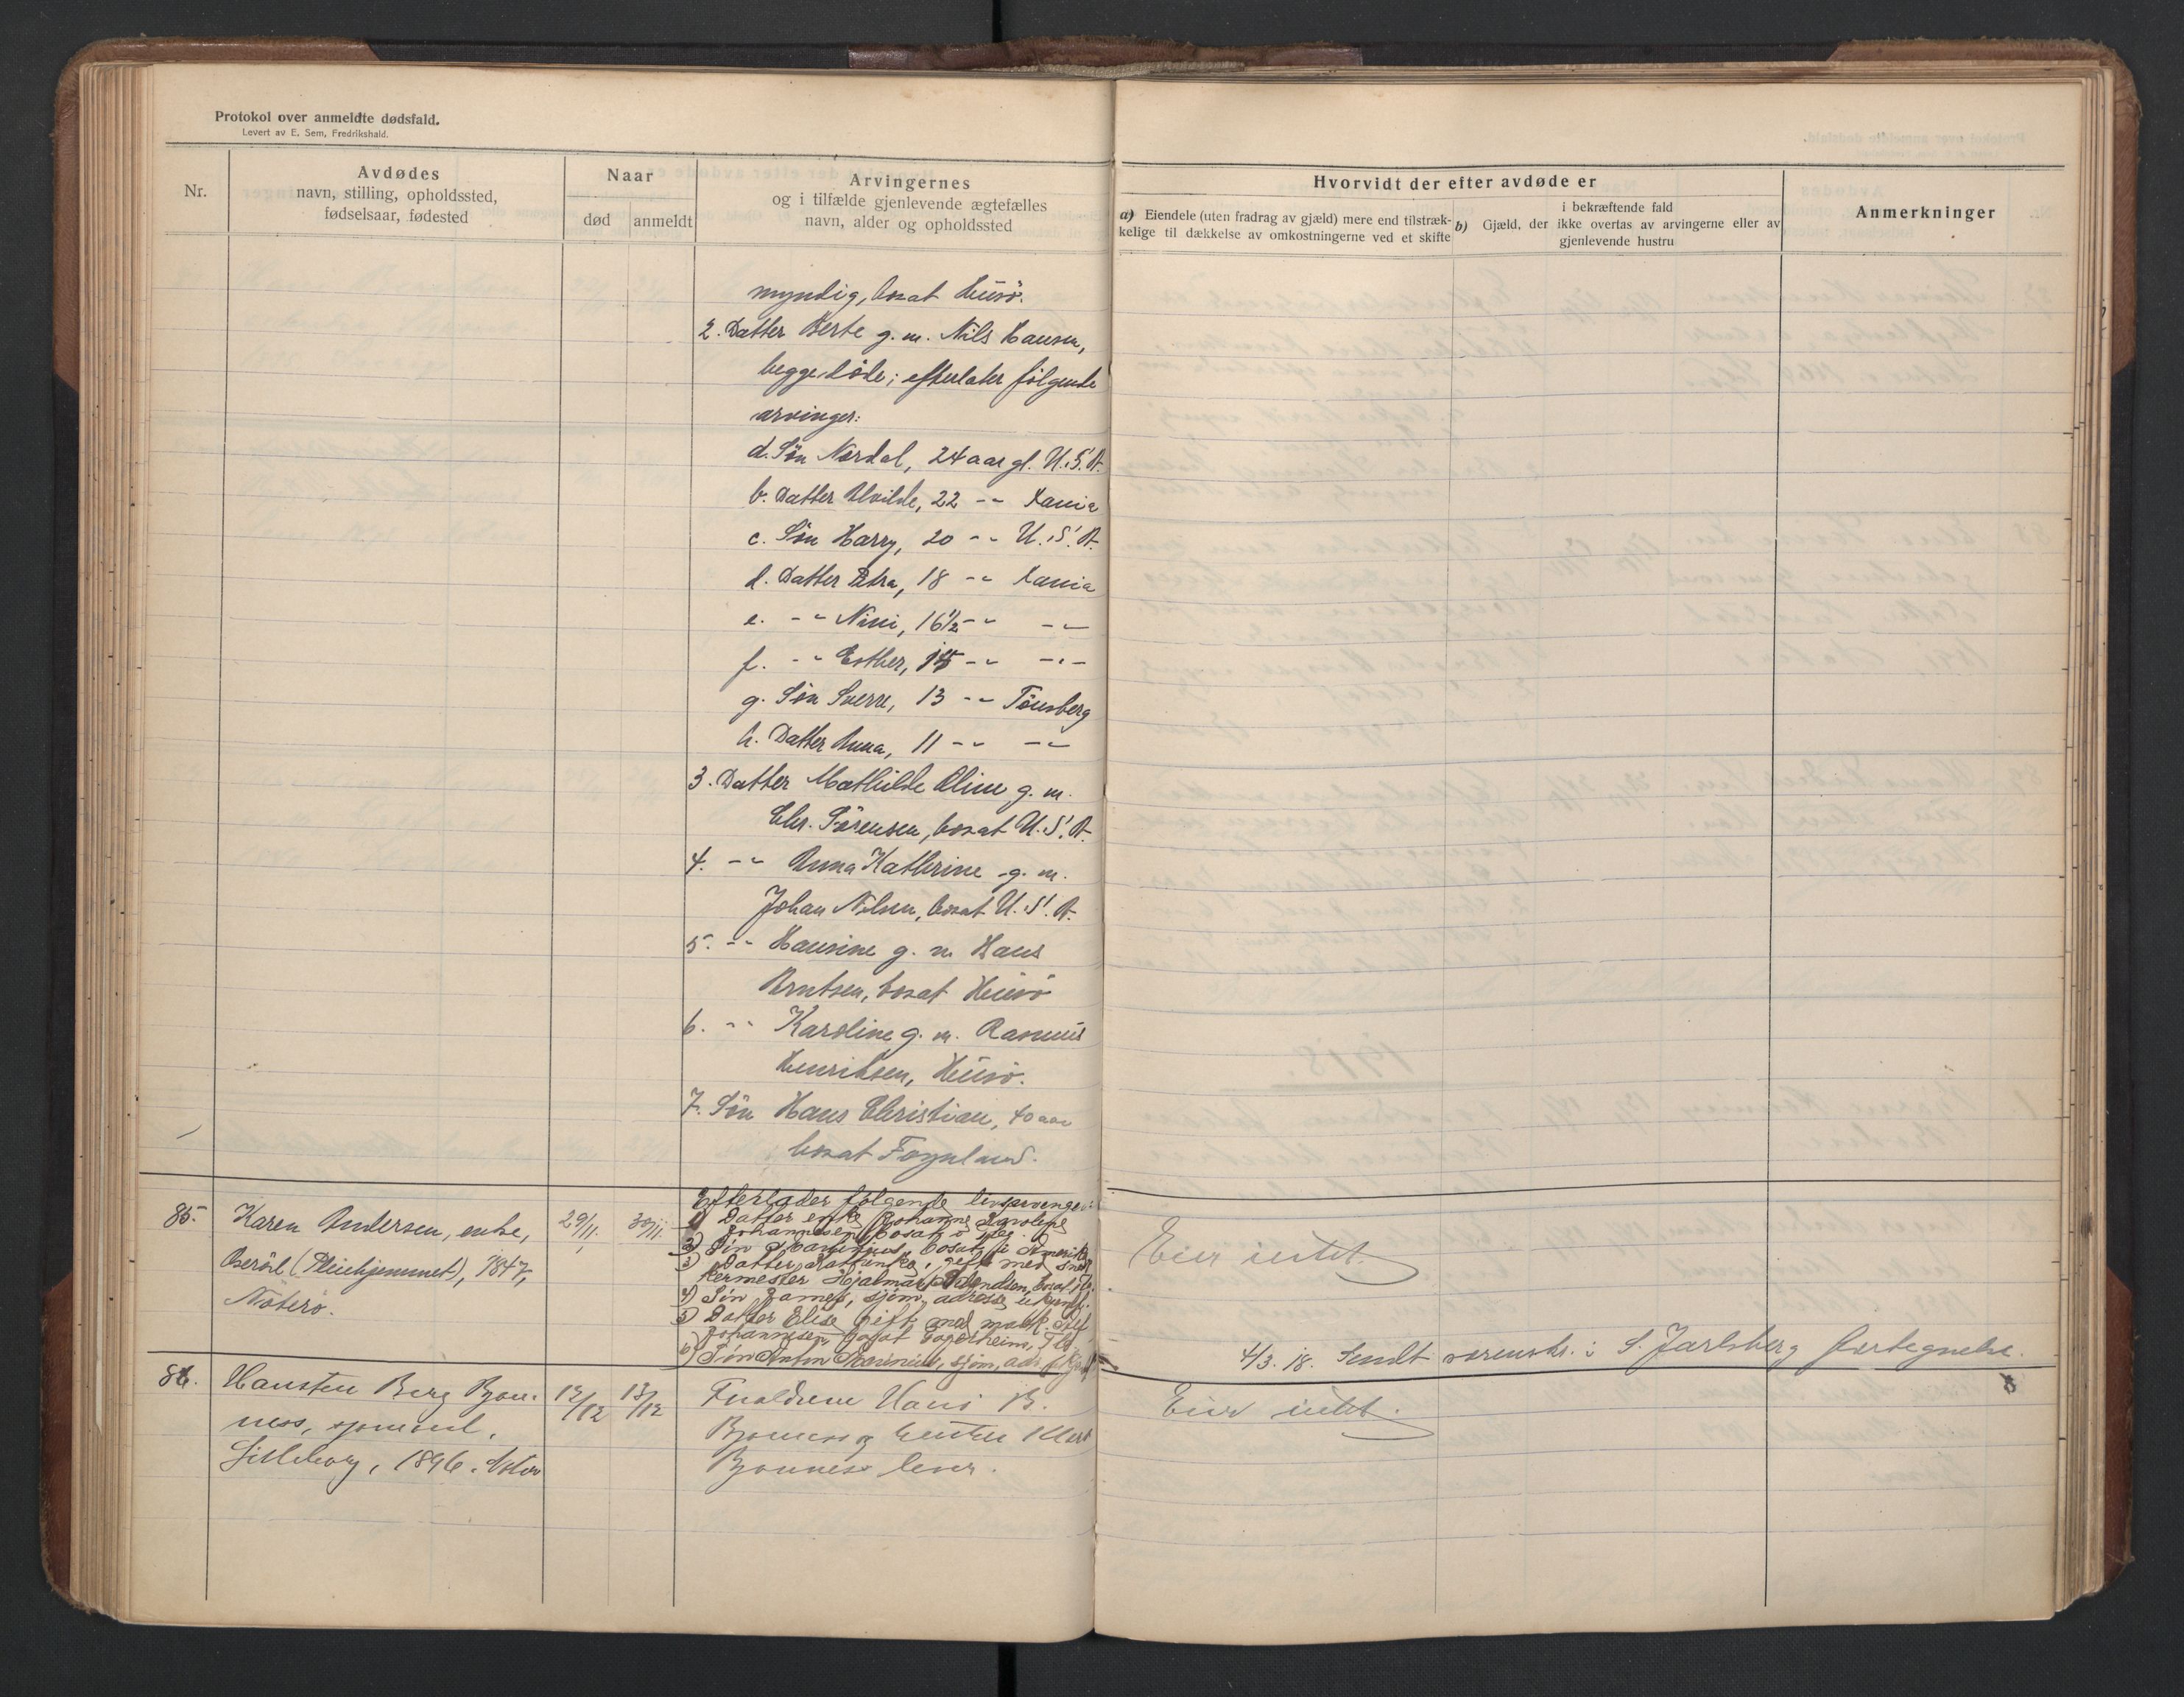 Protokol over anmeldte dødsfald.
Levert av E. Sem, Fredrikshald.
Nr.
Avdødes
navn, stilling, opholdssted,
fødselsaar, fødested
Naar
død
anmeldt
Arvingernes
og i tilfælde gjenlevende ægtefælles
navn, alder og opholdssted
Hvorvidt der efter avdøde er
a) Eiendele (uten fradrag av gjæld) mere end tilstræk-
kelige til dækkelse av omkostningerne ved et skifte
i bekræftende fald
b) Gjæld, der ikke overtas av arvingerne eller av
gjenlevende hustru
Anmerkninger
myndig, bosat Husö.
2. Datter Berte g. m. Nils Hansen,
begge döde; efterlater fölgende
arvinger:
a. Sön Nordal, 24 aar gl. U.S.A.
b. Datter Alvilde, 22 -"- Kania
c. Sön Harry, 20 -"- U.S.A.
d. Datter Petra, 18 -"- Kania
e. -"- Nini, 16 1/2 -"- -"-
f. -"- Esther, 15 -"- -"-
g. Sön Sverre, 13 -"- Tönsberg
h. Datter Anna, 11 -"- -"-
3. Datter Mathilde Oline g. m.
Chr. Sörensen, bosat U.S.A.
4. -"- Anna Kathrine g. m.
Johan Nilsen, bosat U.S.A.
5. -"- Hansine g. m. Hans
Arntsen, bosat Husö
6. -"- Karoline g. m. Rasmus
Henriksen, Husö.
7. Sön Hans Christian, 40 aar
bosat Föynland.
85.
Karen Andersen, enke,
(Pleiehjemmet), 1847,
Nöterö.
29/11.
30/11.
Efterlader følgende livsarvinger:
1) Datter enke Johanne Karoline
Johannesen, bosat i
2) Søn Martinius, bosat i Amerika
3) Datter Kathinka, gift med snek
kermester Hjalmar Svendsen, bosat Tbg.
4) Søn James, sjøm., adresse ukjendt.
5) Datter Elise gift med mask. Olaf
Johannesen, bosat Fagerheim, Tbg.
6) Søn Anton Marinius, sjøm, adr. ukjendt
Eier intet.
4/3. 18. Sendt sorenskr. i S. Jarlsberg fortegnelse.
86.
Hansten Berg Bjön-
ness, sjömand,
1896.
12/12
13/12
Forældrene Hans B.
Bjönness og hustru
Bjönness lever.
Eier intet.